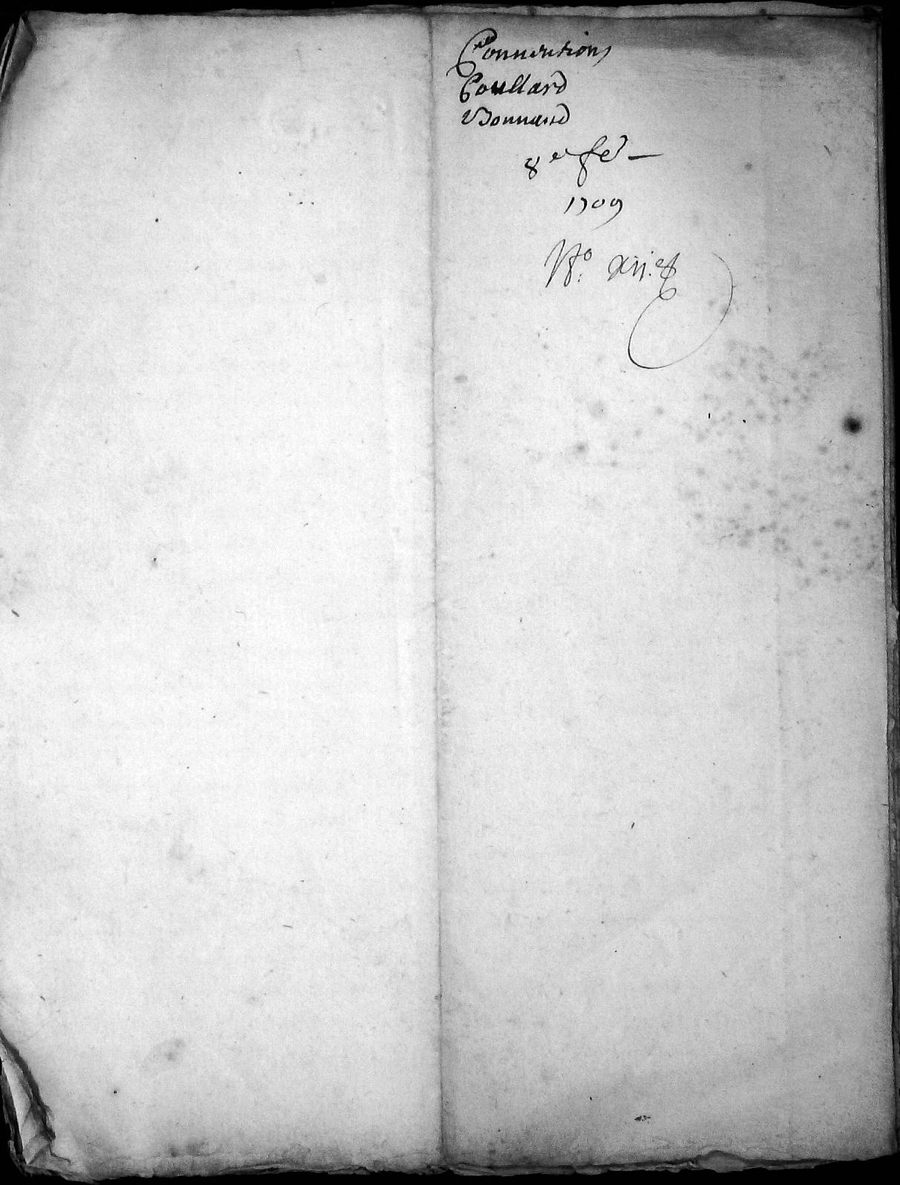 Connentions
Coullard
Bonnard
8e fe
1709
No. xij.e